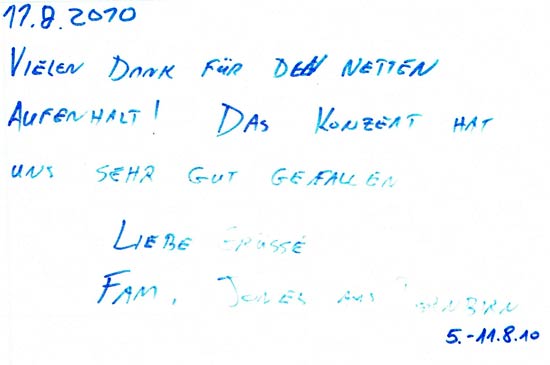 11.8.2010
VIELEN DANK FÜR DEN NETTEN
AUFENHALT! DAS KONZERT HAT
UNS SEHR GUT GEFALLEN
LIEBE GRÜSSE
FAM. AUS
5.-11.8.10